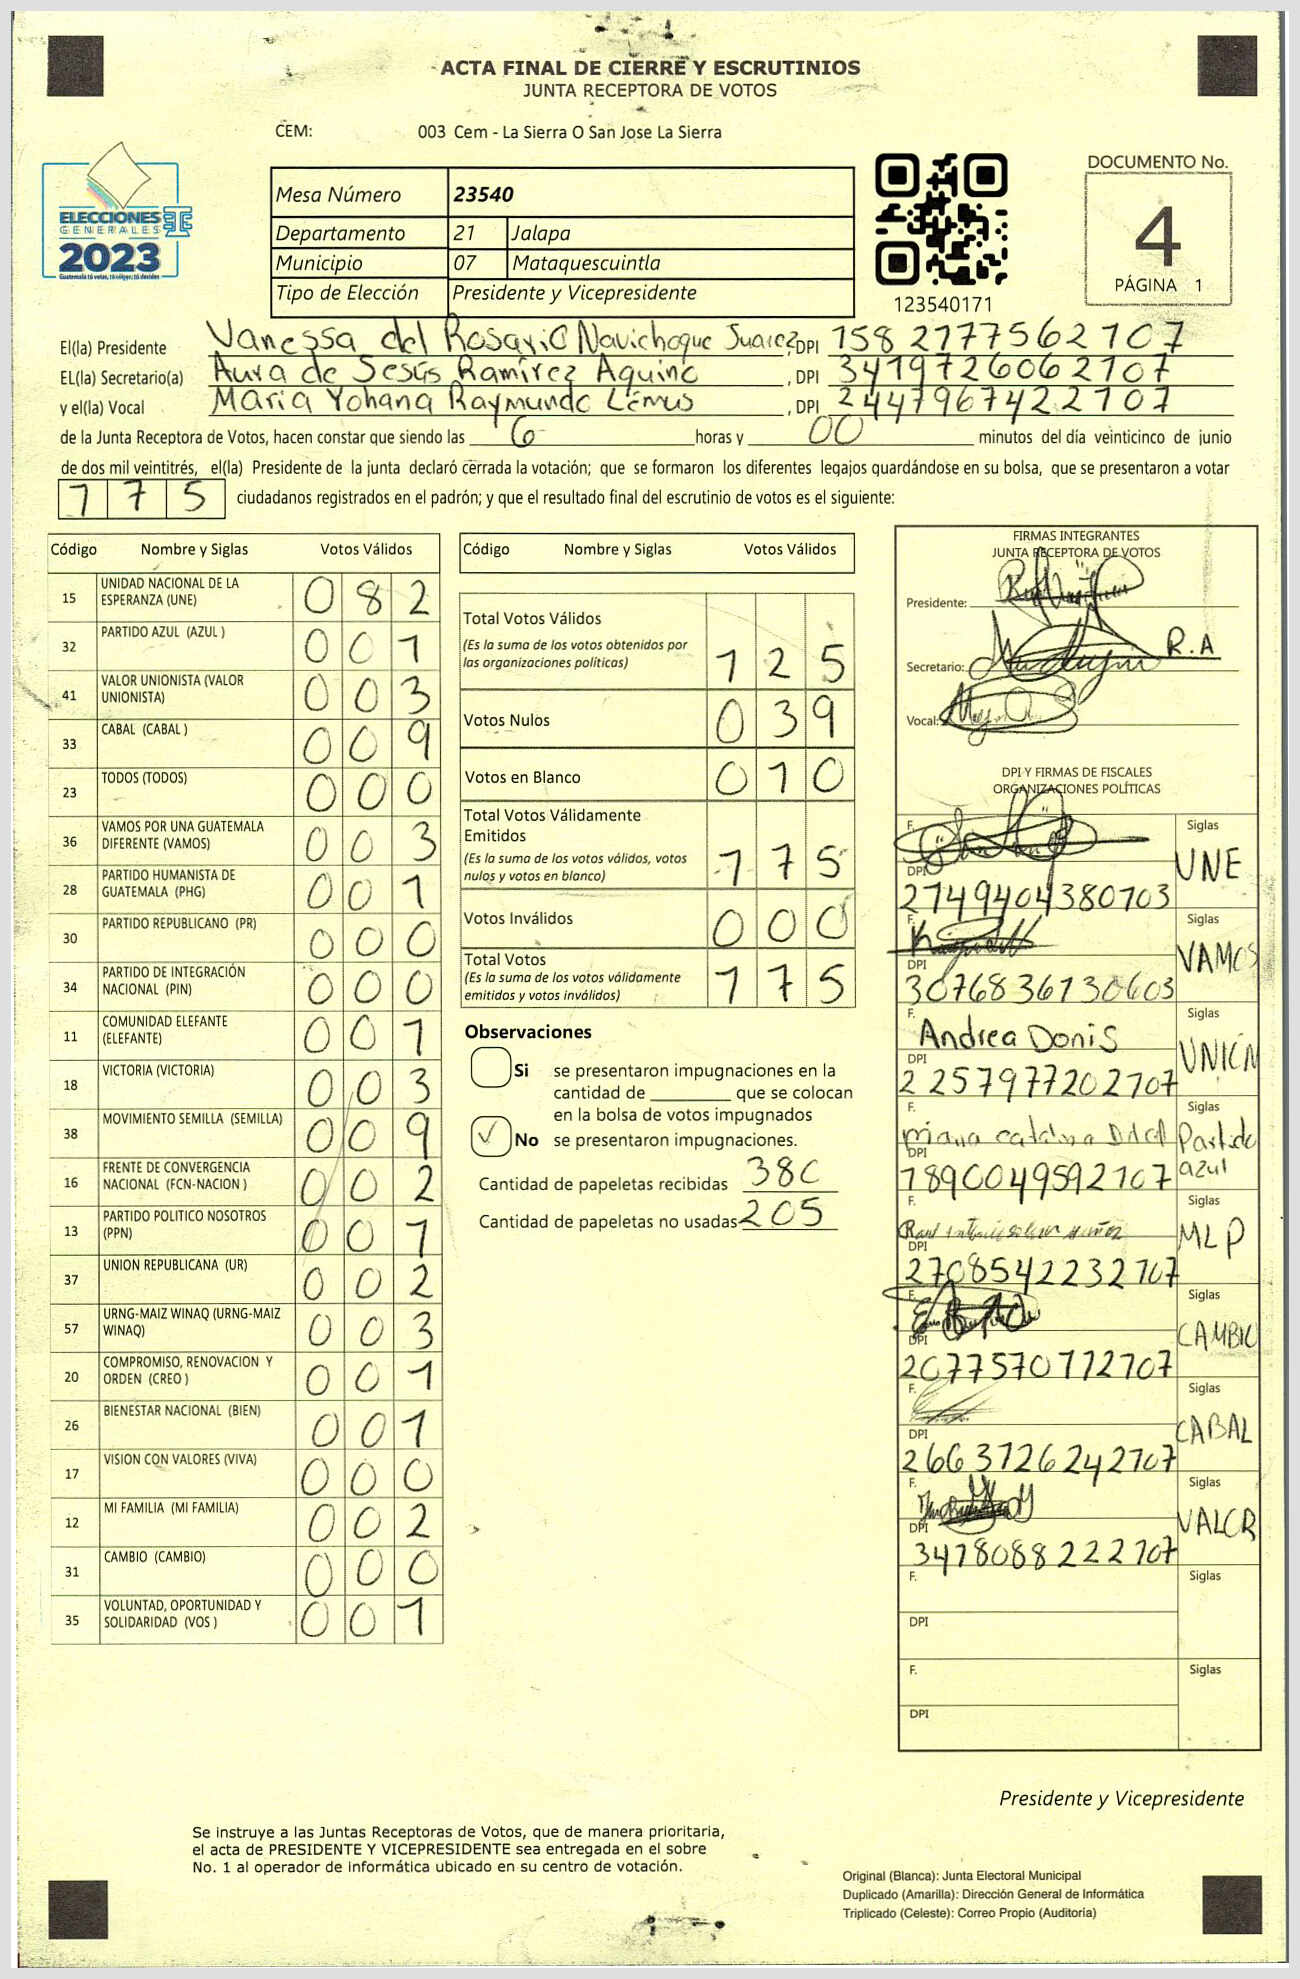 ACTA FINAL DE CIERRE Y ESCRUTINIOS
JUNTA RECEPTORA DE VOTOS
CEM: 003 Cem - La Sierra O San Jose La Sierra
ELECCIONES
GENERALES
2023
Mesa Número 23540
Departamento 21 Jalapa
Municipio 07 Mataquescuintla
Tipo de Elección Presidente y Vicepresidente
123540171
DOCUMENTO No.
4
PÁGINA 1
El(la) Presidente Vanessa del Rosario Navichoque Juarez, DPI 1582177562107
EL(la) Secretario(a) Aura de Jesús Ramírez Aquino, DPI 3419726062107
y el(la) Vocal Maria Yohana Raymundo Lemus, DPI 2447967422107
de la Junta Receptora de Votos, hacen constar que siendo las 6 horas y 00 minutos del día veinticinco de junio
de dos mil veintitrés, el(la) Presidente de la junta declaró cerrada la votación; que se formaron los diferentes legajos guardándose en su bolsa, que se presentaron a votar
175 ciudadanos registrados en el padrón; y que el resultado final del escrutinio de votos es el siguiente:
Código Nombre y Siglas Votos Válidos
15 UNIDAD NACIONAL DE LA ESPERANZA (UNE) 082
32 PARTIDO AZUL (AZUL ) 001
41 VALOR UNIONISTA (VALOR UNIONISTA) 003
33 CABAL (CABAL ) 009
23 TODOS (TODOS) 000
36 VAMOS POR UNA GUATEMALA DIFERENTE (VAMOS) 003
28 PARTIDO HUMANISTA DE GUATEMALA (PHG) 001
30 PARTIDO REPUBLICANO (PR) 000
34 PARTIDO DE INTEGRACIÓN NACIONAL (PIN) 000
11 COMUNIDAD ELEFANTE (ELEFANTE) 001
18 VICTORIA (VICTORIA) 003
38 MOVIMIENTO SEMILLA (SEMILLA) 009
16 FRENTE DE CONVERGENCIA NACIONAL (FCN-NACION ) 002
13 PARTIDO POLITICO NOSOTROS (PPN) 001
37 UNION REPUBLICANA (UR) 002
57 URNG-MAIZ WINAQ (URNG-MAIZ WINAQ) 003
20 COMPROMISO, RENOVACION Y ORDEN (CREO ) 001
26 BIENESTAR NACIONAL (BIEN) 001
17 VISION CON VALORES (VIVA) 000
12 MI FAMILIA (MI FAMILIA) 002
31 CAMBIO (CAMBIO) 000
35 VOLUNTAD, OPORTUNIDAD Y SOLIDARIDAD (VOS ) 001
Código Nombre y Siglas Votos Válidos
Total Votos Válidos
(Es la suma de los votos obtenidos por
las organizaciones politicas) 125
Votos Nulos 039
Votos en Blanco 010
Total Votos Válidamente
Emitidos
(Es la suma de los votos válidos, votos
nulos y votos en blanco) 175
Votos Inválidos 000
Total Votos
(Es la suma de los votos válidamente
emitidos y votos inválidos) 175
Observaciones
Si se presentaron impugnaciones en la
cantidad de ________ que se colocan
en la bolsa de votos impugnados
✓ No se presentaron impugnaciones.
Cantidad de papeletas recibidas 380
Cantidad de papeletas no usadas 205
FIRMAS INTEGRANTES
JUNTA RECEPTORA DE VOTOS
Presidente:
Secretario: R.A
Vocal:
DPI Y FIRMAS DE FISCALES
ORGANIZACIONES POLÍTICAS
F. Siglas UNE
DPI 2749404380703
F. Siglas VAMOS
DPI 3076836130603
F. Andrea Donis Siglas UNIÓN
DPI 2257977202107
F. catalina Siglas Partido azul
DPI 1890049592107
F. Siglas MLP
DPI 2708542232107
F. Siglas CAMBIO
DPI 2077570112107
F. Siglas CABAL
DPI 2663726242107
F. Siglas VALOR
DPI 3418088222107
F. Siglas
DPI
F. Siglas
DPI
Presidente y Vicepresidente
Se instruye a las Juntas Receptoras de Votos, que de manera prioritaria,
el acta de PRESIDENTE Y VICEPRESIDENTE sea entregada en el sobre
No. 1 al operador de informática ubicado en su centro de votación.
Original (Blanca): Junta Electoral Municipal
Duplicado (Amarilla): Dirección General de Informática
Triplicado (Celeste): Correo Propio (Auditoria)